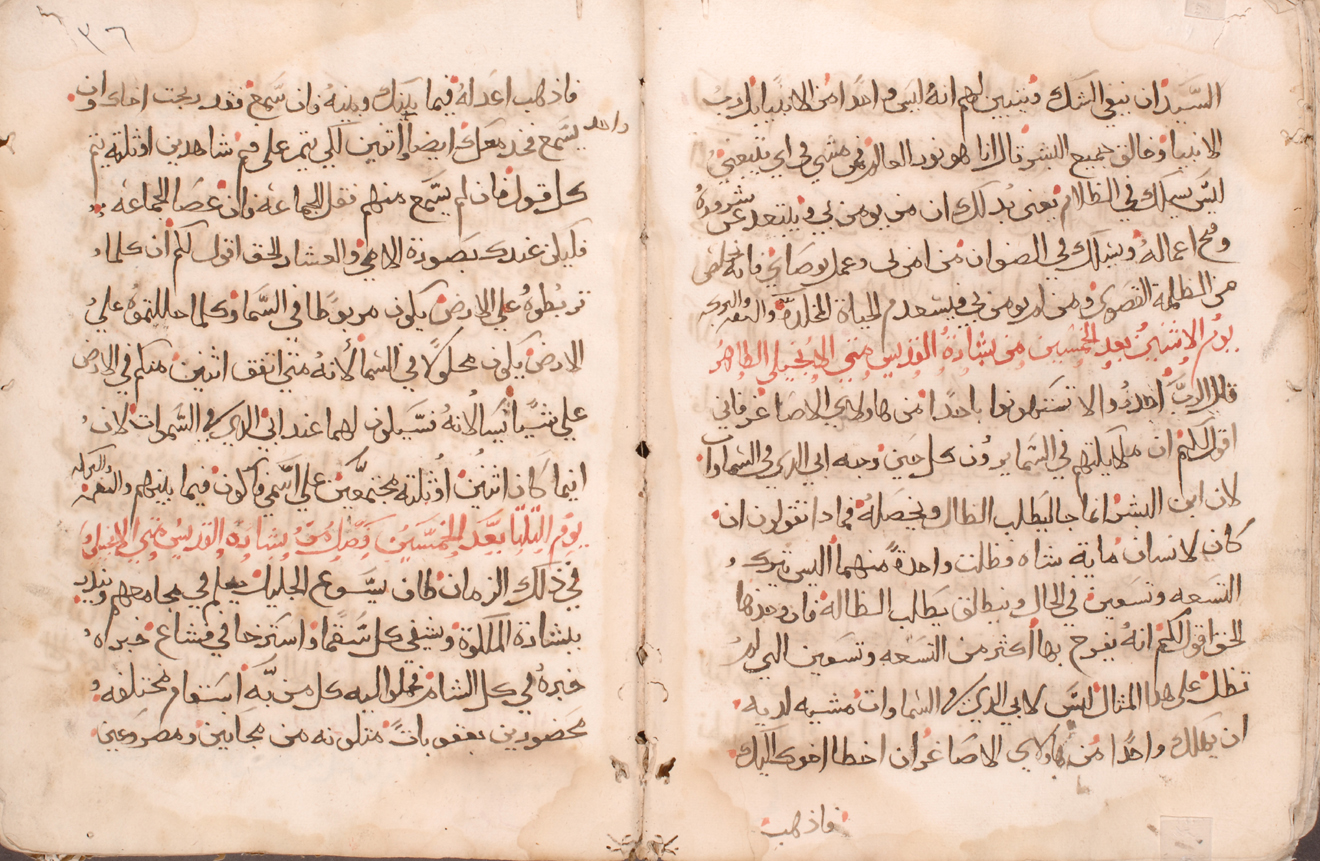 السيدان ينفي الشك ويتبين لهم انه ليس واحدا من الانبيا بل رب
الانبيا وخالق جميع البشر قال انا هو نور العالم فمن مشي في اي يتبعني
ليس يسلك في الظلام تعني بذلك ان من يومن بي ويبتعد عن شروره
وقبح اعماله ويسلك في الصواب متي امن بي وعمل بوصاي فانه يخلص
من الظلمة القصوي ومن لم يومن بي فيستعدم الحياة المخلدة والنعمه والبركه
يوم الاثنين بعد الخمسين من بشارة القديس متي الانجيلي الطاهر
قال الرب احدروا الا تستهونوا باحدا من هاولاي الاصاغر فاني
اقول لكم ان ملايكتهم في السما يرون كل حين وجه ابي الدي في السماوات
لان ابن البشر انما جا ليطلب الظال ويخصله فمادا تقولون ان
كان لانسان ماية شاه وظلت واحدة منهما اليس يترك
التسعه وتسعين في الجبال وينطلق يطلب الظاله فان وجدها
الحق اقول لكم انه يفرح بها اكثر من التسعه وتسعين التي لم
تظل علي هدا المثال ليس لابي الدي في السماوات مشيه لديه
ان يهلك واحدا من هاولاي الاصاغر ان اخطا اخوك اليك
فاذهب
٣٦
فاذهب اعدله فيما بينك وبينه فان سمع فقد ربحت اخاك وان
يسمع فخد معك ايضا واحد او اتنين لكي يتم علي فم شاهدين او ثلثه يتم
كل قول فان لم يسمع منهم فقل للجماعه وان عصا الجماعه
فليكن عندك بصورة الامي والعشار الحق اقول لكم ان كلما
تربطوه علي الارض يكون مربوطا في السما وكلما حللتموه علي
الارض يكون محلولا في السما لانه متي اتفق اثنين منكم في الارض
علي شيا يسالانه فسيكون لهما عند ابي الدي في السموات لان
اينما كان اثنين او ثلثه مجتمعين علي اسمي فاكون فيما بينهم والنعمه والبركه
يوم التلتا بعد الخمسين فصل من بشارة القديس متي الانجيلي
في ذلك الزمان طاف يسوع الجليل يعلم في مجامعهم وينذر
ببشارة الملكوة ويشفي كل سقما واسترخا في فشاع خبره
خبره في كل الشام فحملوا اليه كل من به اسقام مختلفه
محضورين بعقوبات متلونه من مجانين ومصروعين